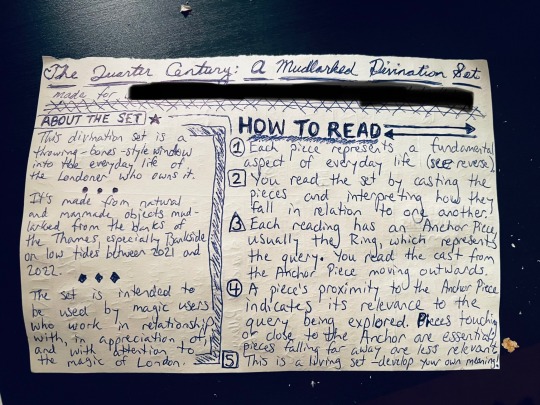 The Quarter Century: A Mudlarked Divination Set
made for
ABOUT THE SET
This divination set is a
throwing-bones-style window
into the everyday life of
the Londoner who owns it.
It's made from natural
and manmade objects mud-
larked from the banks of
the Thames, especially Bankside
on low tides between 2021 and
2022.
The set is intended to
be used by magic users
who work in relationship
with, in appreciation of,
and with attention to
the magic of London.
HOW TO READ
1 Each piece represents a fundamental
aspect of everyday life (see reverse)
2 You read the set by casting the
pieces and interpreting how they
fall in relation to one another!
3 Each reading has an Anchor Piece,
usually the Ring, which represents
the query. You read the cast from
the Anchor Piece moving outwards.
4 A piece's proximity to the Anchor Piece
indicates its relevance to the
query being explored. Pieces touching
or close to the Anchor are essential,
pieces falling far away are less relevant
5 This is a living set - develop your own meanings!